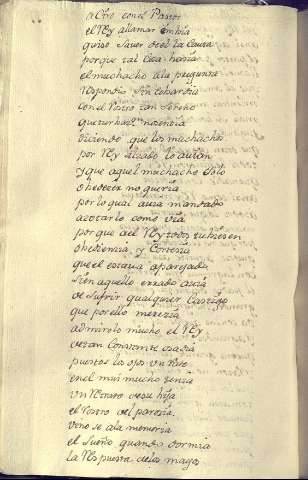 a Ciro con el Pastor
el Rey a llamar embia
quiso saver deel la causa
porque tal cosa hacia
el muchacho a la pregunta
respondio sin cobardia
con el rostro tan sereno
diciendo que los muchachos
por Rey alzado lo avian
y que aquel muchacho solo
obedecer no queria
por lo qual avia mandado
azotarlo como via
por que a el Rey todos tubiesen
obediencia, y cortesia
que el estava aparejado
si en aquello errado avia
de sufrir qualquier castigo
que por ello merezia
admirose mucho el Rey
ver tan constante osadia
puestos los ojos en Ciro
en el mui mucho
un retrato de su hija
el rostro del parezia
vino se a la memoria
el sueño quando dormia
la respuesta de los magos